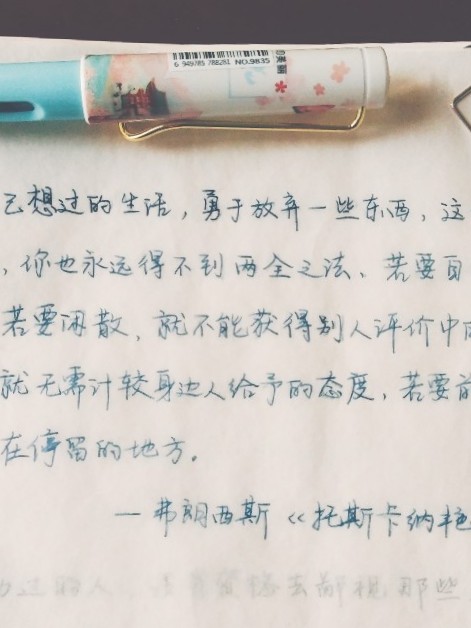 的美丽
6 949785 788281 NO.9835
己想过的生活,勇于放弃一些东西,这
,你也永远得不到两全之法、若要自
若要闲散、就不能获得别人评价中的
就无需计较身边人给予的态度、若要前
在停留的地方。
— 弗朗西斯《托斯卡纳艳